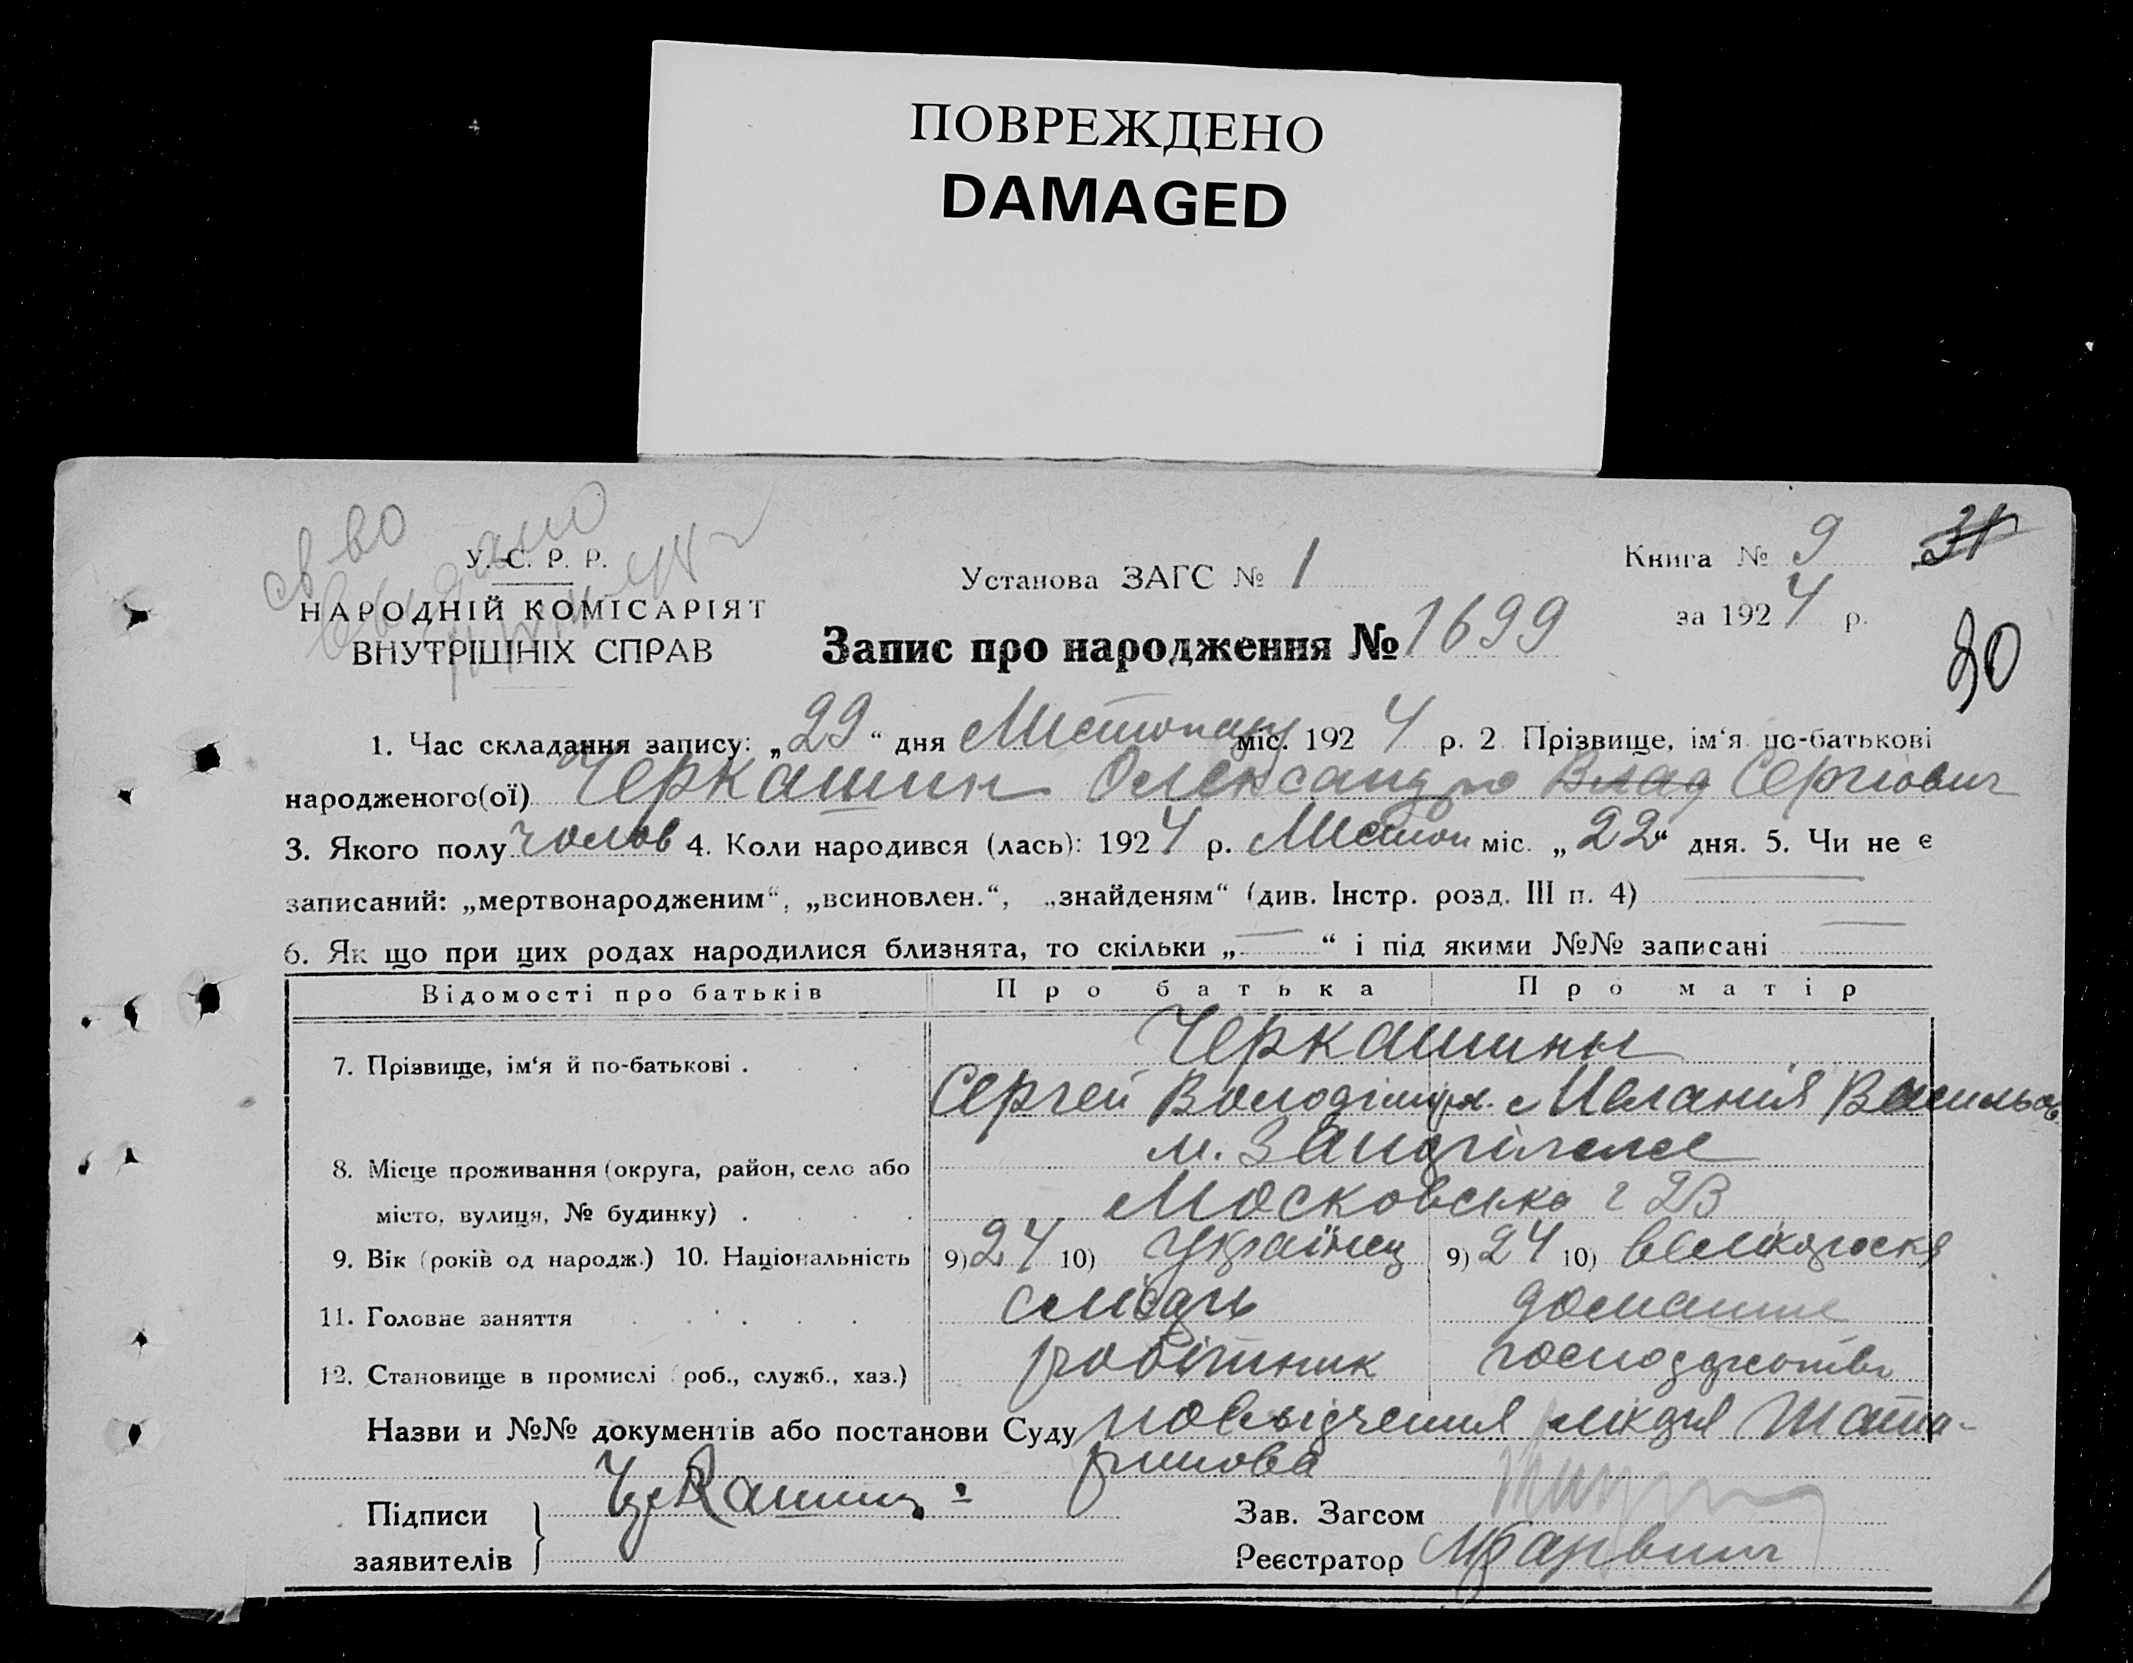 ПОВРЕЖДЕНО
DAMAGED
св во
У. С. Р. Р.
НАРОДНІЙ КОМІСАРІЯТ
ВНУТРІШНІХ СПРАВ
Установа ЗАГС № 1
Книга № 9 31
за 1924 р.
80
Запис про народження № 1699
1. Час складання запису: „29“ дня Листопаду міс. 1924 р. 2. Прізвище, ім‘я по-батькові
народженого(ої) Черкашин Олександр Влад Сергіович
3. Якого полу чолов 4. Коли народився (лась): 1924 р. Листоп міс. „22“ дня. 5. Чи не є
записаний: „мертвонародженим“, „всиновлен.“, „знайденям“ (див. Інстр. розд. III п. 4) —
6. Як що при цих родах народилися близнята, то скільки „—“ і під якими №№ записані —
Відомості про батьків Про батька Про матір
7. Прізвище, ім‘я й по-батькові . Черкашины
Сергей Володімір. Меланія Васильов
8. Місце проживання (округа, район, село або м.
місто, вулиця, № будинку) . Московська 23
9. Вік (років од народж.) 10. Національність 9) 24 10) Українец 9) 24 10) великороска
11. Головне заняття слюсарь домашне
12. Становище в промислі (роб., служб., хаз.) робітник господарство
Назви и №№ документів або постанови Суду посвідчення лікаря Шата-
ринова
Підписи
заявителів
Черкашин
Зав. Загсом
Реєстратор